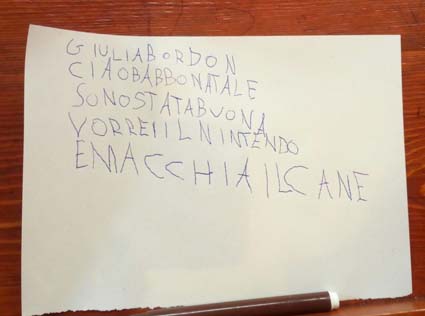 GIULIABORDON
CIAOBABBONATALE
SONOSTATABUONA
VORREIILNINTENDO
EMACCHIAILCANE